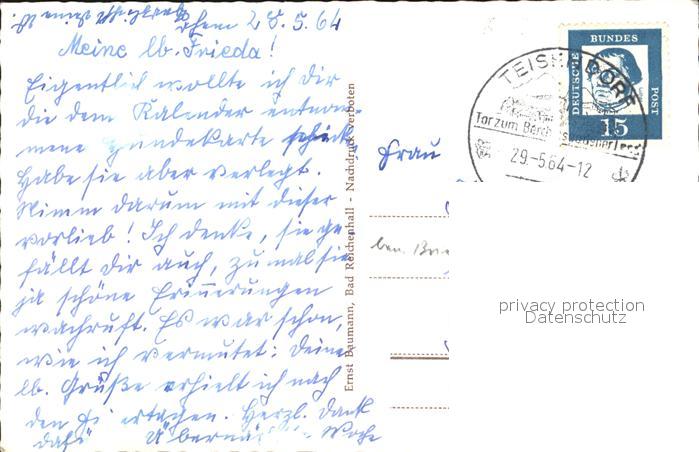 28.5.64
Meine lb. Frieda!
Eigentlich wollte ich Dir
die dem Kalender entnom
mene Hundekarte schick
Habe sie aber verlegt.
Nimm darum mit dieser
vorlieb! Ich denke, sie ge
fällt Dir auch, zumal sie
ja schöne Erinnerungen
wachruft. Es war schon,
wie ich vermutet: Deine
lb. Grüße erhielt ich nach
den Fei ertagen. Herzl. Dank
dafü Übernäc Woche
Ernst Baumann, Bad Reichenhall - Nachdruck verboten
Frau
TEISENDORF
Tor zum Berchtesgadener Land
29.-5.64-12
DEUTSCHE
BUNDES
POST
15
privacy protection
Datenschutz